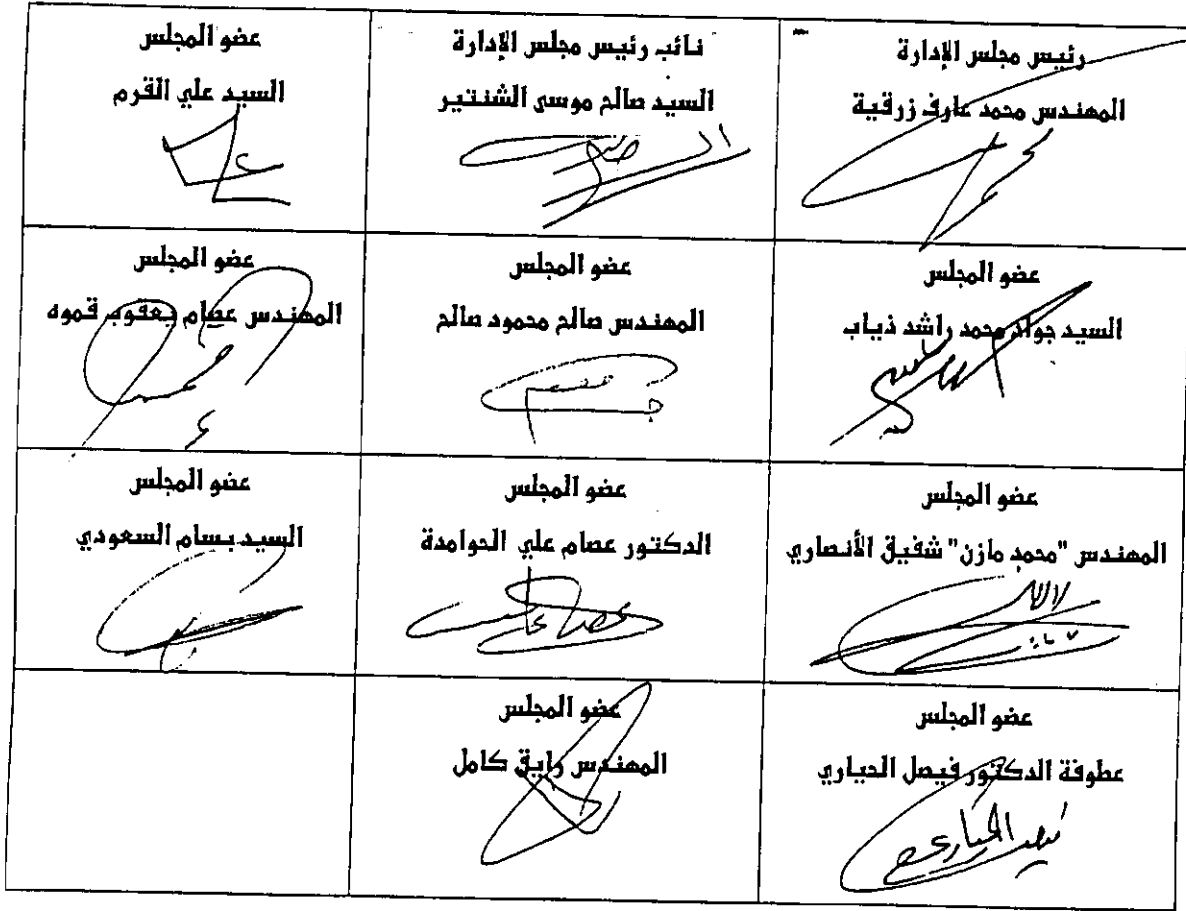 رئيس مجلس الإدارة
المهندس محمد عارف زرقية
نائب رئيس مجلس الإدارة
السيد صالح موسى الشنتير
عضو المجلس
السيد علي القرم
عضو المجلس
السيد جواد محمد راشد ذياب
عضو المجلس
المهندس صالح محمود صالح
عضو المجلس
المهندس عصام يعقوب قموه
عضو المجلس
المهندس "محمد مازن" شفيق الأنصاري
عضو المجلس
الدكتور عصام علي الحوامدة
عضو المجلس
السيد بسام السعودي
عضو المجلس
عطوفة الدكتور فيصل الحياري
عضو المجلس
المهندس رايق كامل